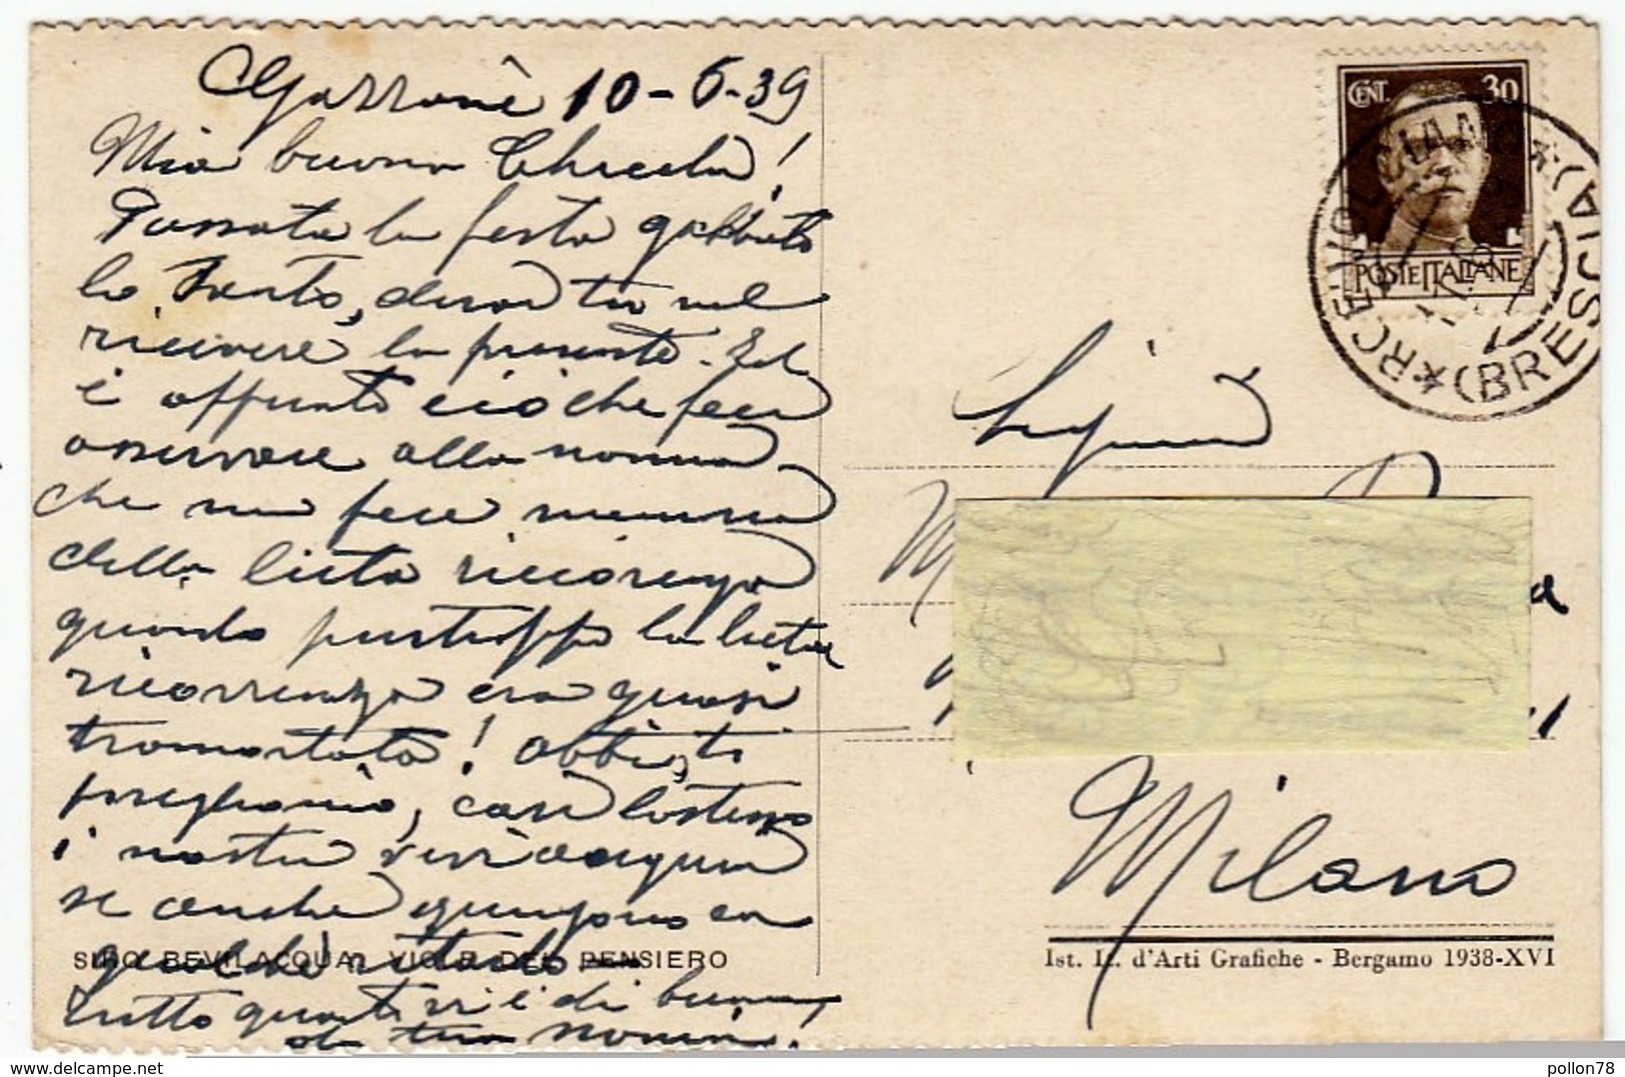 10-6-39
Mia buona
Passata la festa gabbato
lo Santo, dirai tu nel
ricevere la presente. Ed
è appunto ciò che feci
osservare alla nonna
che mi fece memoria
della lieta ricorrenza
quando purtroppo la lieta
ricorrenza era quasi
tramontata! abbiati
perciò lo stesso
i nostri vivi auguri
se anche giungono con
qualche ritardo
tutto quanti vi è di buono
da tua nonna!
SIRO BEVILACQUA: VIOLE DEL PENSIERO
CENT. 30
POSTE ITALIANE
(BRESCIA)
Milano
Ist. It. d'Arti Grafiche - Bergamo 1938-XVI
pollon78